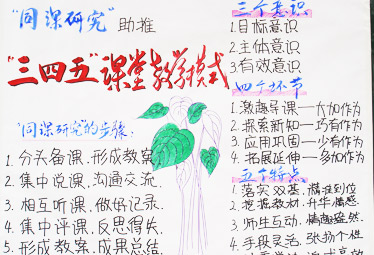 “同课研究”助推
“三四五”课堂教学模式
“同课研究”的步骤:
1. 分头备课.形成教案
2. 集中说课.沟通交流.
3. 相互听课.做好记录.
4. 集中评课.反思得失.
5. 形成教案.成果总结.
三个意识
1.目标意识
2.主体意识
3.有效意识
四个环节
1. 激趣导课—大加作为
2. 探索新知—巧有作为
3. 应用巩固—少有作为
4. 拓展延伸—多加作为
五个特点
1. 落实双基.精准到位
2. 挖掘教材.升华情感
3. 师生互动.情趣盎然
4. 手段灵活.张扬个性